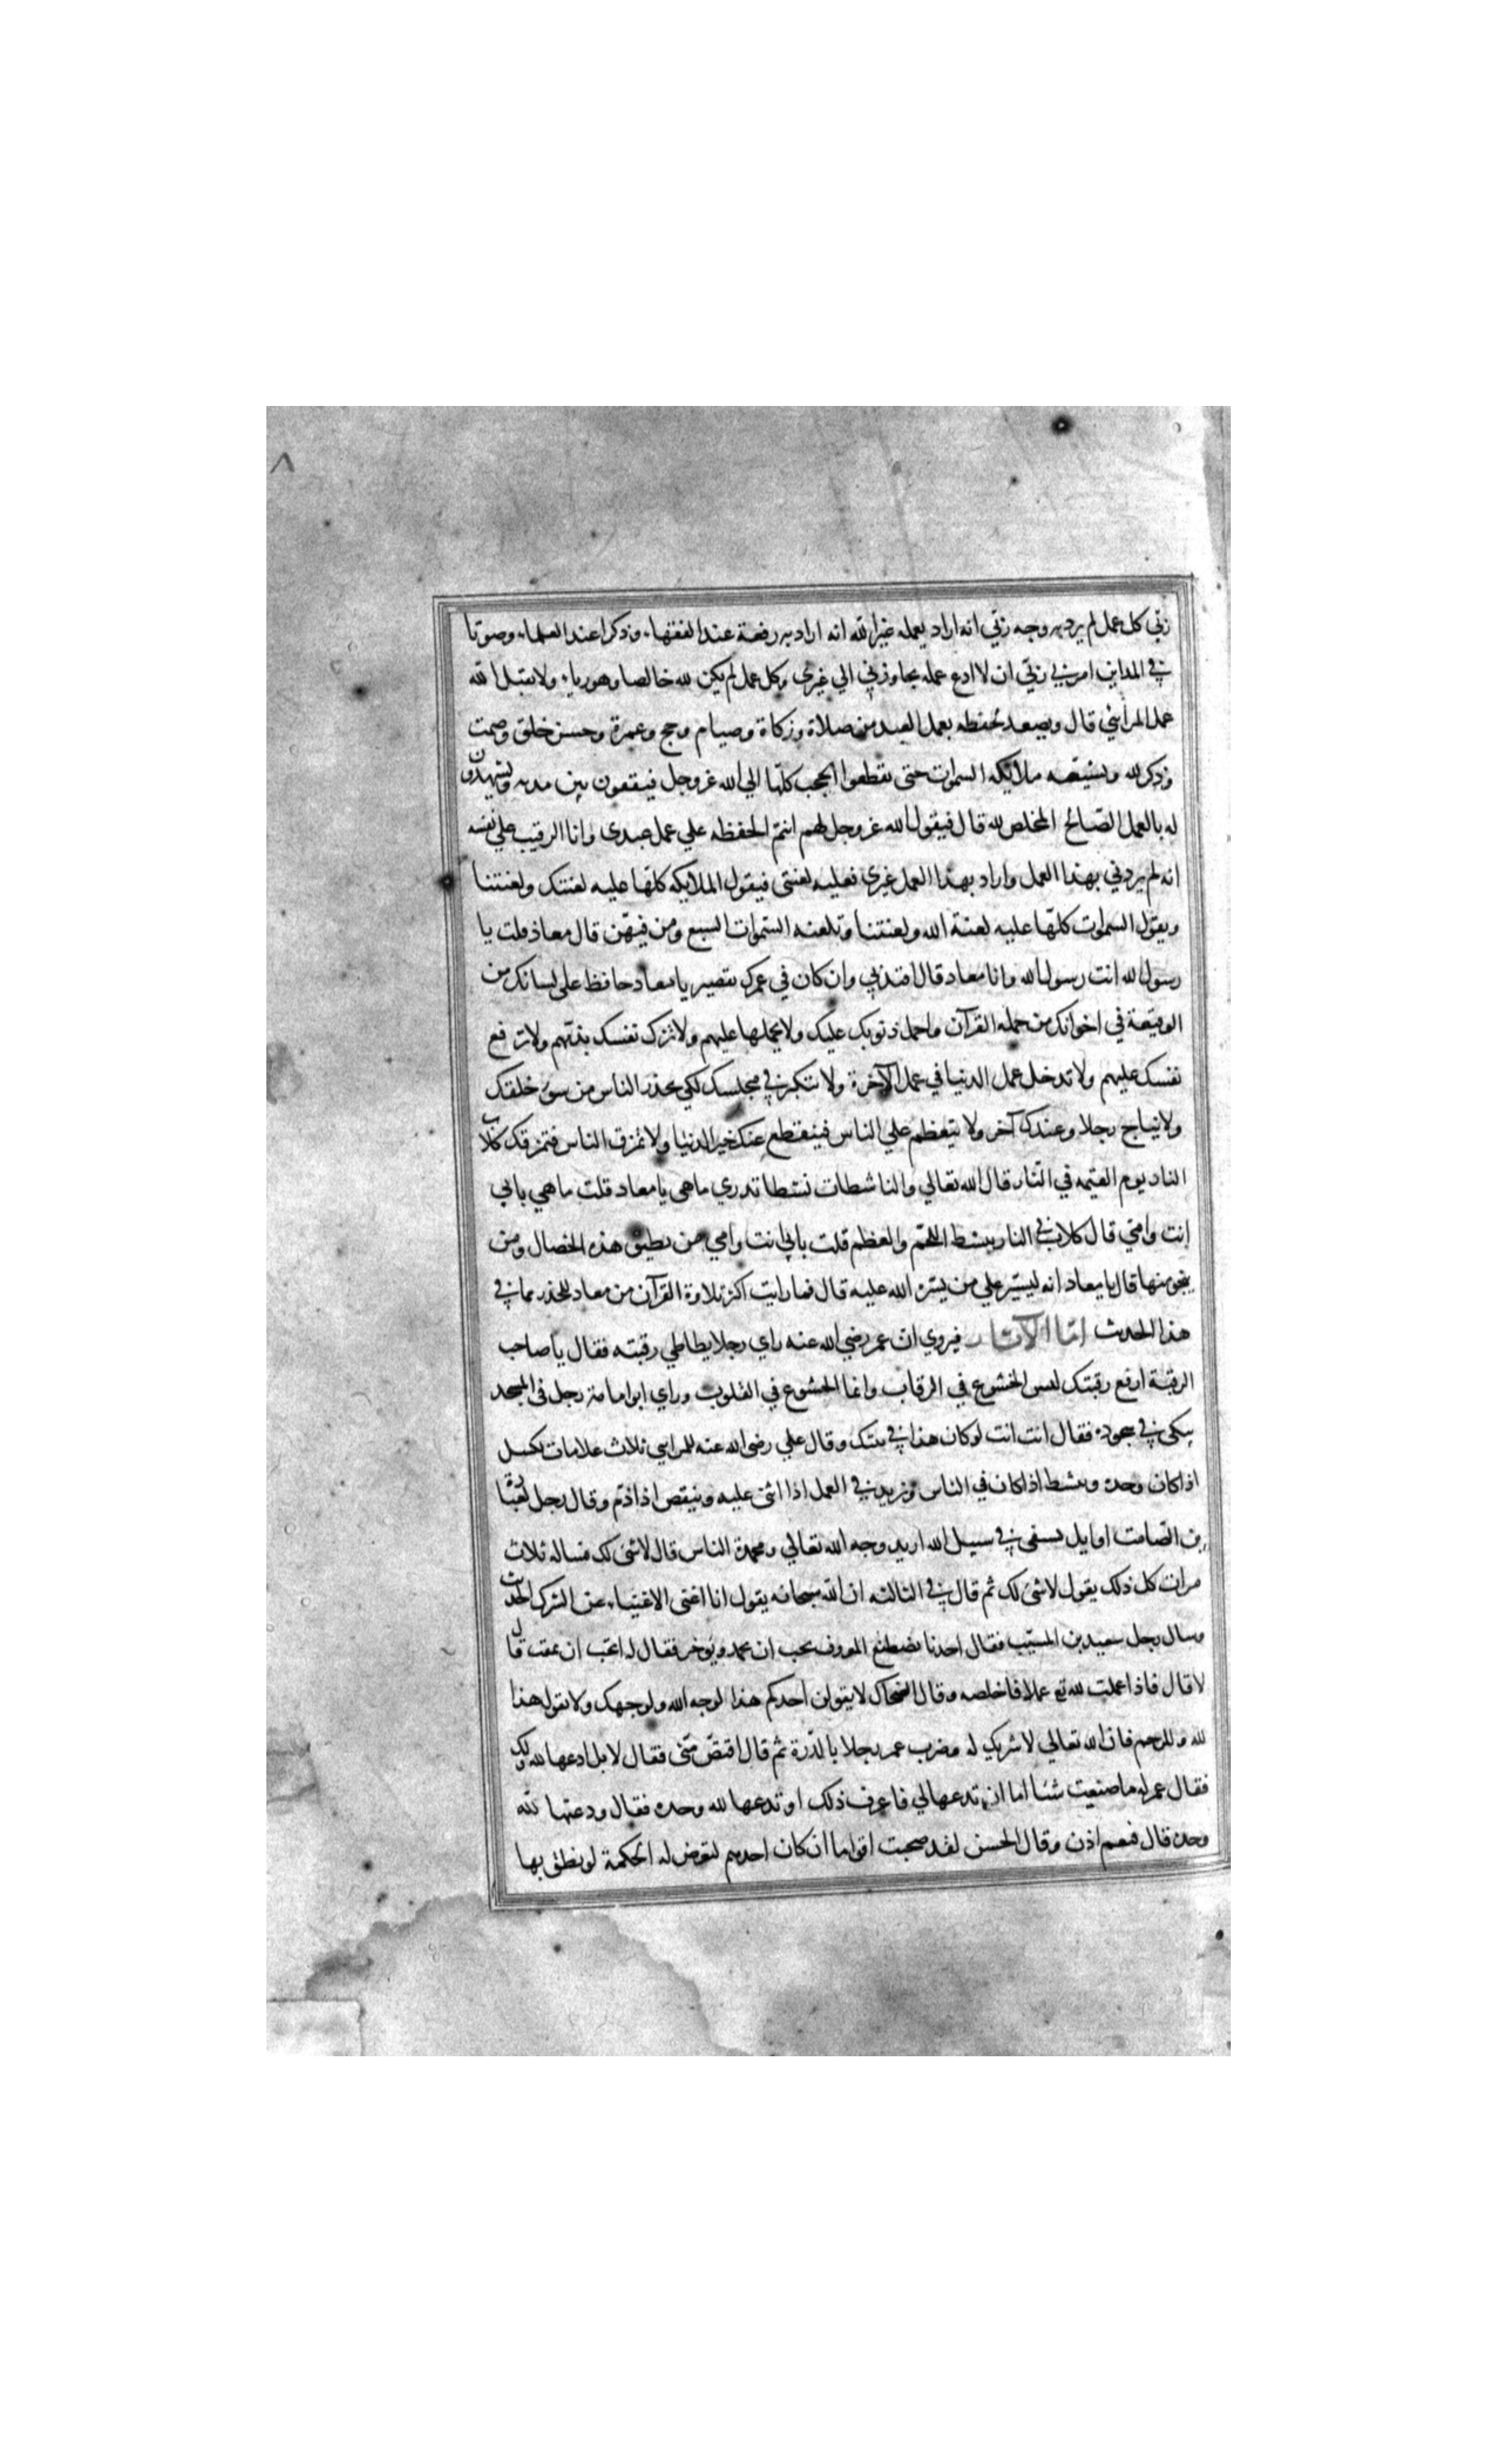 ٨
ربي كل عمل لم يرد به وجه ربي انه اراد بعمله غير الله انه اراد به رفعة عند الفقهاء وذكرا عند العلماء وصوتا
في المداين امرني ربي ان لا ادع عمله يجاوزني الي غيري وكل عمل لم يكن لله خالصا وهو رياء ولا يقبل الله
عمل المرائي قال ويصعد الحفظه بعمل العبد من صلاة وزكاة وصيام وحج وعمرة وحسن خلق وصمت
وذكر لله وتشيعه ملائكه السموات حتى يقطعوا الحجب كلها الي الله عز وجل فيقفون بين يديه ويشهدون
له بالعمل الصّالح المخلص لله قال فيقول الله عز وجل لهم انتم الحفظه علي عمل عبدي وانا الرقيب علي نفسه
انه لم يردني بهذا العمل واراد بهذا العمل غيري فعليه لعنتي فيقول الملايكه كلّها عليه لعنتك ولعنتنا
ويقول السموات كلّها عليه لعنة الله ولعنتنا وتلعنه السّموات السبع ومن فيهّن قال معاذ قلت يا
رسول الله انت رسول الله وانا معاد قال اقتد بي وان كان في عمرك تقصير يا معاد حافظ على لسانك من
الوقيعة في اخوانك من حمله القرآن واحمل ذنوبك عليك ولا تحملها عليهم ولا تزك نفسك بذمّهم ولا ترفع
نفسك عليهم ولا تدخل عمل الدنيا في عمل الآخرة ولا تتكبر في مجلسك لكي يحذر الناس من سوء خلقك
ولا تناج رجلا وعندك آخر ولا تتعظم علي الناس فينقطع عنك خير الدنيا ولا تمزق الناس فتمزقك كلاب
النار يوم القيمه في النّار قال الله تعالي والناشطات نشطا تدري ماهى يا معاد قلت ما هي بابي
انت وامّي قال كلاب في النار ينشط اللحم والعظم قلت بابي انت وامي من يطيق هذه الخصال ومن
ينجو منها قال يا معاد انه ليسير علي من يسّره الله عليه قال فما رايت اكثر تلاوة القرآن من معاد للحذر مما في
هذا الحديث امّا الآثار فيروي ان عمر رضي الله عنه راي رجلا يطاطي رقبته فقال يا صاحب
الرقبة ارفع رقبتك ليس الخشوع في الرقاب وانما الخشوع في القلوب وراي ابو امامة رجل فى المسجد
يبكي في سجوده فقال انت انت لو كان هذا في بيتك وقال علي رضى الله عنه للمرايي ثلاث علامات يكسل
اذا كان وحده وينشط اذا كان في الناس ويزيد في العمل اذا اثنى عليه وينقص اذا ذمّ وقال رجل لعبادة
بن الصّامت اقاتل بسيفى في سبيل الله اريد وجه الله تعالي ومحمدة الناس قال لا شئ لك فساله ثلاث
مرات كل ذلك يقول لا شئ لك ثم قال في الثالثه ان الله سبحانه يقول انا اغنى الاغنياء عن الشرك الحديث
وسال رجل سعيد بن المسيّب فقال احدنا يصطنع المعروف يحب ان يحمد ويوجر فقال له اتحب ان تمقت قال
لا قال فاذا عملت لله تع عملا فاخلصه وقال الضحاك لا يقولن احدكم هذا لوجه الله ولوجهك ولا يقول هذا
لله وللرحم فان الله تعالي لا شريك له وضرب عمر رجلا بالدّرة ثم قال اقتصّ منّى فقال لا بل ادعها لله ولك
فقال عمر له ما صنعت شئا اما ان تدعها لي فاعرف ذلك او تدعها لله وحده فقال ودعتها لله
وحده قال فنعم اذن وقال الحسن لقد صحبت اقواما ان كان احدهم لتعرض له الحكمة لو نطق بها